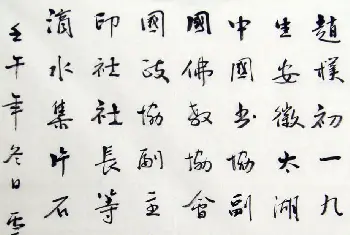 趙樸初一九
生安徽太湖
中國書協副
國佛教協會
國政協副主
印社社長等
滴水集片石
壬午年冬日雲